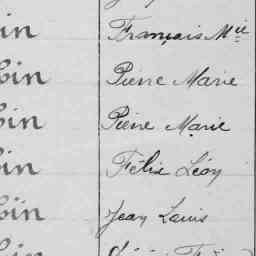 in François Mie
bin Pierre Marie
bin Pierre Marie
bin Félix Léon
bin Jean Louis